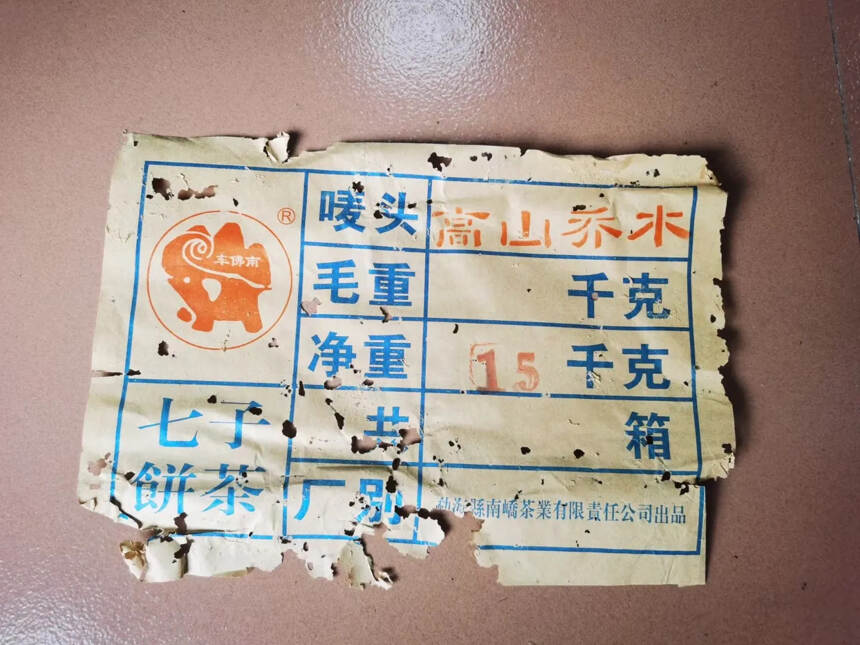 车佛南
®
唛头 高山乔木
毛重 千克
净重 15 千克
共 箱
七子
餅茶
厂别 勐海縣南嶠茶業有限責任公司出品